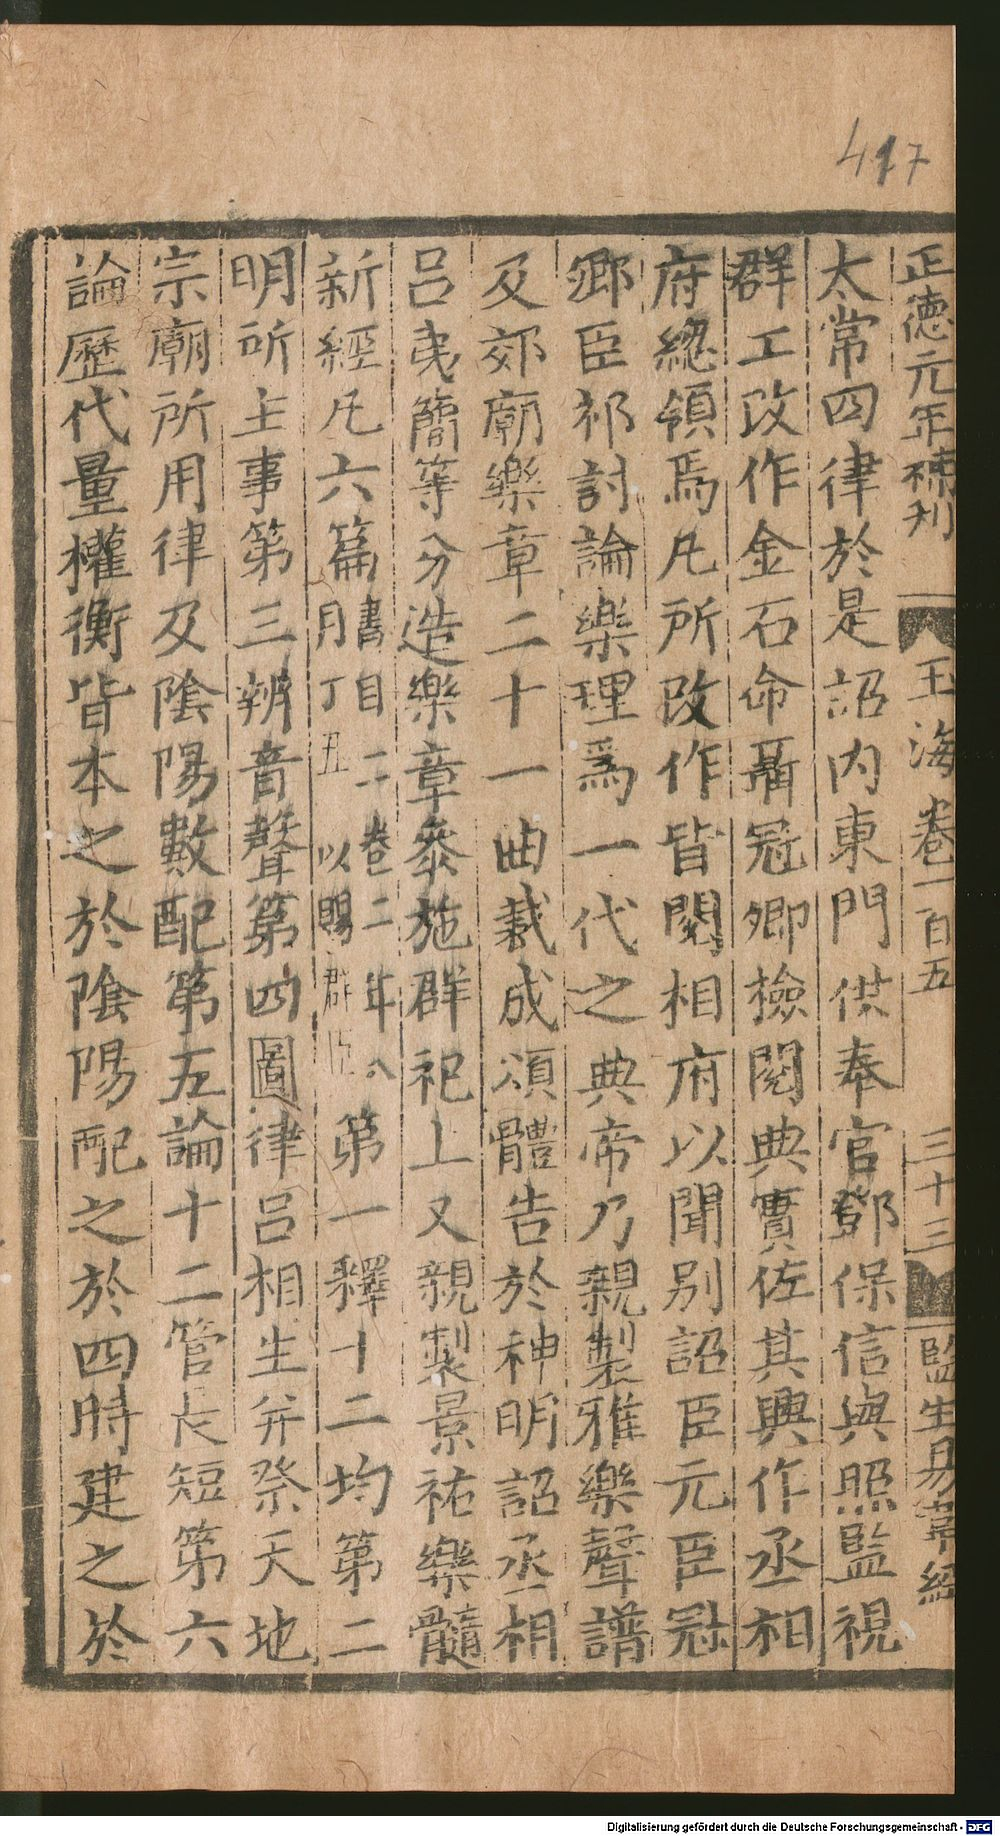 417
正德元年補刋 玉海卷一百五 三十三 監生易常經
太常四律於是詔内東門供奉官鄧保信與照監視
群工改作金石命聶冠卿檢閱典實佐其興作丞相
府總領焉凡所改作皆関相府以聞别詔臣元臣冠
卿臣祁討論樂理爲一代之典帝乃親製雅樂聲譜
及郊廟樂章二十一曲裁成頌體告於神明詔丞相
吕夷簡等分造樂章叅施群祀上又親製景祐樂髓
新經凡六篇書目二卷二年八月丁丑以賜群臣第一釋十二均第二
明所主事第三辨音聲第四圖律吕相生并祭天地
宗廟所用律及陰陽數配第五論十二管長短第六
論歷代量權衡皆本之於陰陽配之於四時建之於
Digitalisierung gefördert durch die Deutsche Forschungsgemeinschaft - DFG